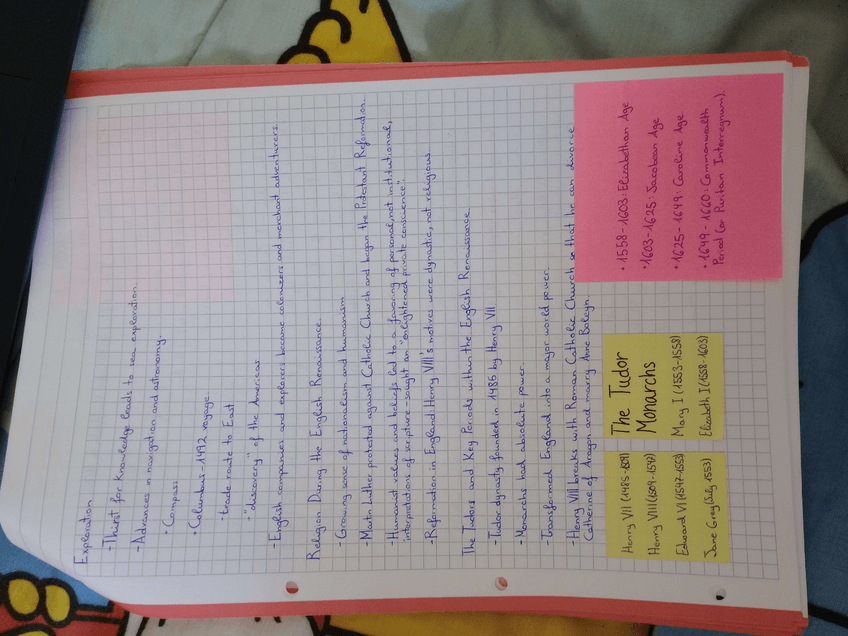 Exploration
-Thirst for Knowledge leads to sea exploration.
-Advances in navigation and astronomy.
• Compass
• Columbus-1492 voyage
- trade route to East
-"discovery" of the Americas
-English companies and explorers became colonizers and merchant adventurers.
Religion During the English Renaissance.
-Growing sense of nationalism and humanism
-Martin Luther protested against Catholic Church and began the Protestant Reformation.
-Humanist values and beliefs led to a favoring of personal, not institutional,
interpretations of scripture-sought an "enlightened private conscience".
-Reformation in England, Henry VIII's motives were dynastic, not religious
The Tudors and Key Periods within the English Renaissance.
-Tudor dynasty founded in 1485 by Henry VII
-Monarchs had absolute power.
-Transformed England into a major world power.
-Henry VIII breaks with Roman Catholic Church so that he can divorce
Catherine of Aragon and marry Anne Boleyn.
Henry VII (1485-1509)
Henry VIII (1509-1547)
Edward VI (1547-1553)
Jane Grey (July 1553)
The Tudor
Monarchs
Mary I (1553-1558)
Elizabeth I (1558-1603)
• 1558-1603: Elizabethan Age
• 1603-1625: Jacobean Age
• 1625-1649: Caroline Age
• 1649-1660: Commonwealth
Period (or Puritan Interregnum).